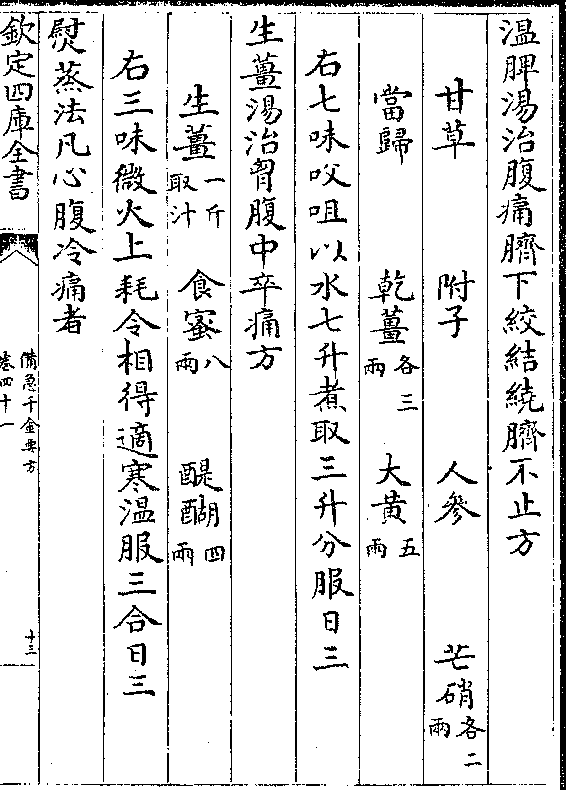 温脾湯治腹痛臍下絞結繞臍不止方
甘草　附子　人參　芒硝各二兩
當歸　乾薑各三兩　大黃五兩
右七味㕮咀以水七升煮取三升分服日三
生薑湯治胷腹中卒痛方
生薑一斤取汁　食蜜八兩　醍醐四兩
右三味微火上耗令相得適寒温服三合日三
熨蒸法凡心腹冷痛者
欽定四庫全書
備急千金要方
卷四十一
十三